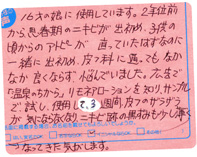 16才の娘に使用しています。2年位前
から思春期のニキビが出初め、子供の
頃からのアトピーが直っていたはずなのに
一緒に出初め、皮フ科に通っても なか
なか良くならず、悩んでいました。広告で
「温泉のちから」、リモネアローションを知り、サンプル
で試し、使用して、3週間、皮フのザラザラ
が気にならなくなり、ニキビ跡の黒ずみも少し薄く
なってきた気がします。